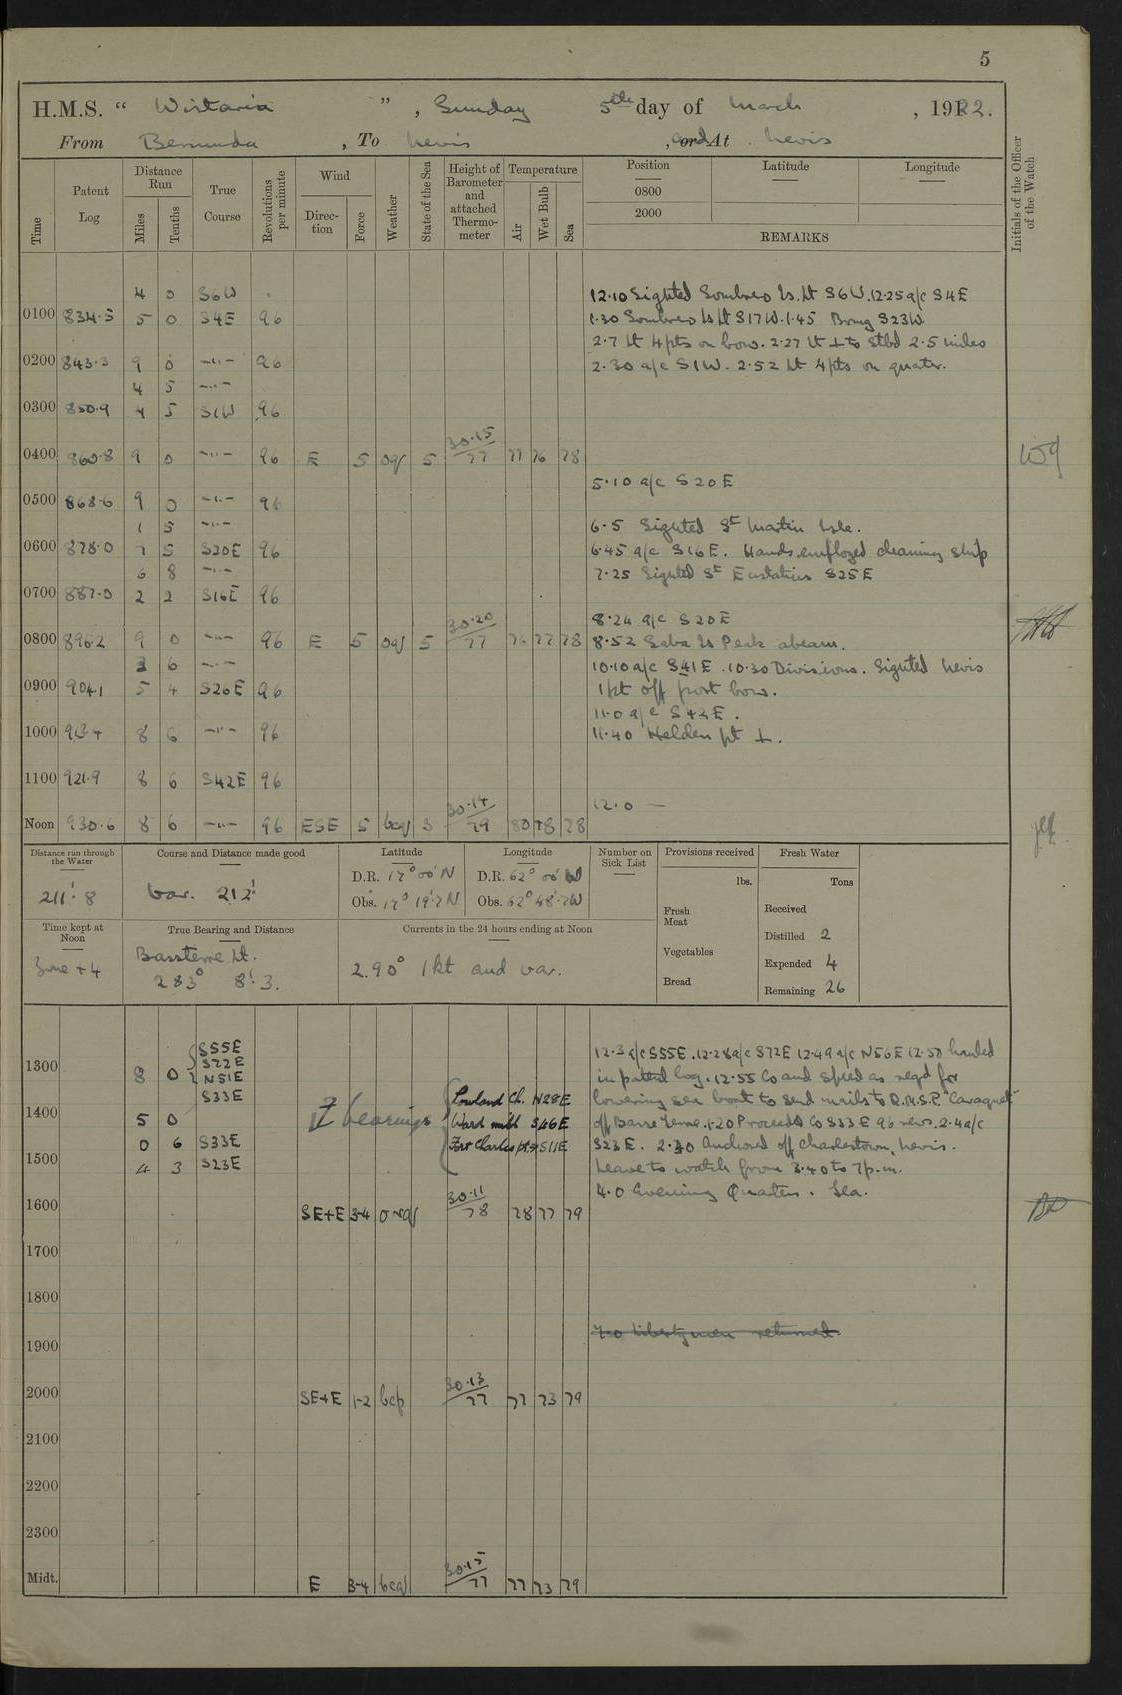 5
H.M.S. " Wistaria ", Sunday 5th day of March, 1922.
From Bermuda, To Nevis, and At Nevis
Time
Patent Log
Distance Run
Miles
Tenths
True Course
Revolutions per minute
Wind
Direction
Force
Weather
State of the Sea
Height of Barometer and attached Thermometer
Temperature
Air
Wet Bulb
Sea
Position
0800
2000
Latitude
Longitude
REMARKS
Initials of the Officer of the Watch
4 0 S6W 12.10 Sighted Sombrero Is. Lt S6W. 12.25 a/c S4E
0100 834.5 5 0 S4E 96 1.30 Sombrero Is Lt S17W. 1.45 Brng S23W
2.7 Lt 4pts on bow. 2.27 Lt ⊥ to Stbd 2.5 miles
0200 843.3 9 0 -"- 96 2.30 a/c S1W. 2.52 Lt 4pts on quarter.
4 5 -"-
0300 850.9 4 5 S1W 96
0400 860.8 9 0 -"- 96 E 5 oq 5 30.15/77 77 76 78
5.10 a/c S20E
0500 868.6 9 0 -"- 96
1 5 -"- 6.5 Sighted St Martin Isle.
0600 878.0 7 5 S20E 96 6.45 a/c S16E. Hands employed cleaning ship
6 8 -"- 7.25 Sighted St Eustatius S25E
0700 887.0 2 2 S16E 96
8.24 a/c S20E
0800 896.2 9 0 -"- 96 E 5 oq 5 30.20/77 76 77 78 8.52 Saba Is Peak abeam.
3 6 -"- 10.10 a/c S41E. 10.30 Divisions. Sighted Nevis
0900 904.1 5 4 S26E 96 1pt off port bow.
11.0 a/c S42E.
1000 913.4 8 6 -"- 96 11.40 Helden pt ⊥.
1100 921.9 8 6 S42E 96
12.0 —
Noon 930.6 8 6 -"- 96 ESE 5 bcq 3 30.14/79 80 78 78
Distance run through the Water
211'.8
Course and Distance made good
Var. 212'
Latitude
D.R. 17° 00' N
Obs. 17° 19'.2 N
Longitude
D.R. 62° 00' W
Obs. 62° 48'.2 W
Number on Sick List
Provisions received
lbs.
Fresh Meat
Vegetables
Bread
Fresh Water
Tons
Received
Distilled 2
Expended 4
Remaining 26
Time kept at Noon
Zone + 4
True Bearing and Distance
Basseterre Lt.
283° 8'.3.
Currents in the 24 hours ending at Noon
290° 1kt and var.
S55E 12.3 a/c S55E. 12.28 a/c S72E 12.49 a/c N56E 12.50 handed
1300 8 0 S72E
N51E in patent log. 12.55 Co and speed as reqd for
S33E Lowland Ch. N28E lowering sea boat to send mails to R.M.S.P. "Caraquet"
1400 5 0 ⚓ bearings Ward mill S46E off Basse Terre. 1.20 Proceeded Co S33E 96 revs. 2.4 a/c
0 6 S33E Fort Charles pt S11E S23E. 2.30 Anchored off Charlestown, Nevis.
1500 4 3 S23E Leave to watch from 3.40 to 7p.m.
4.0 Evening Quarters.
1600 SE+E 3-4 30.11/78 78 77 79
1700
1800
7.0 Libertymen returned
1900
2000 SE+E 1-2 bcp 30.13/77 77 73 79
2100
2200
2300
Midt. E 3-4 bcq 30.15/77 77 73 79